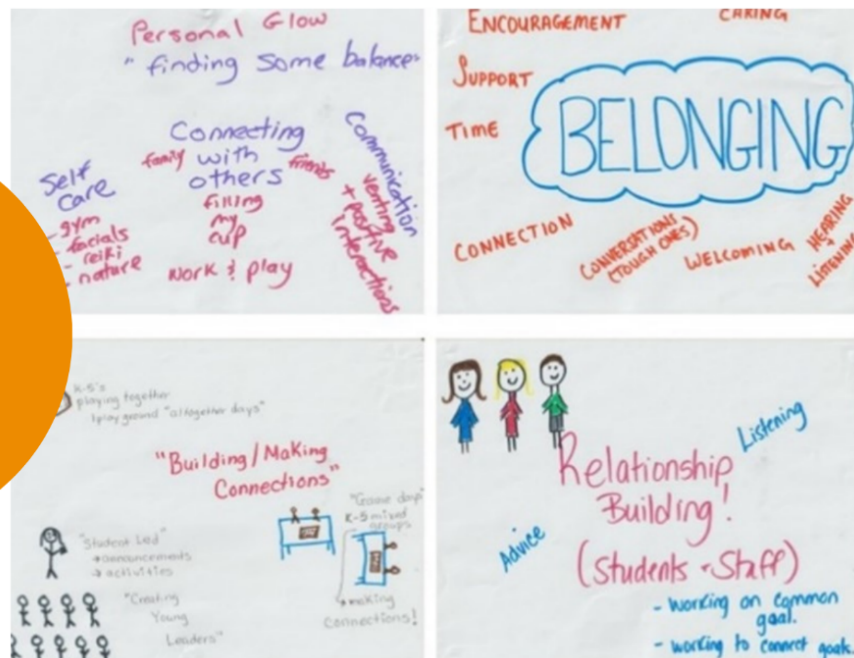 Personal Glow
"finding some balance"
Connecting
with
others
family
friends
filling
my
cup
work & play
Self
care
- gym
- facials
- reiki
- nature
Communication
venting
+ positive
interactions
ENCOURAGEMENT
CARING
SUPPORT
TIME
BELONGING
CONNECTION
CONVERSATIONS
(TOUGH ONES)
WELCOMING
HEARING
+
LISTENING
K-5's
playing together
playground "altogether days"
"Building/Making
Connections"
"Student Led"
→ announcements
→ activities
"Creating
Young
Leaders"
"Game day"
K-5 mixed
groups
making
connections!
Listening
Relationship
Building!
(Students + Staff)
Advice
- working on common
goal.
- working to connect goals.